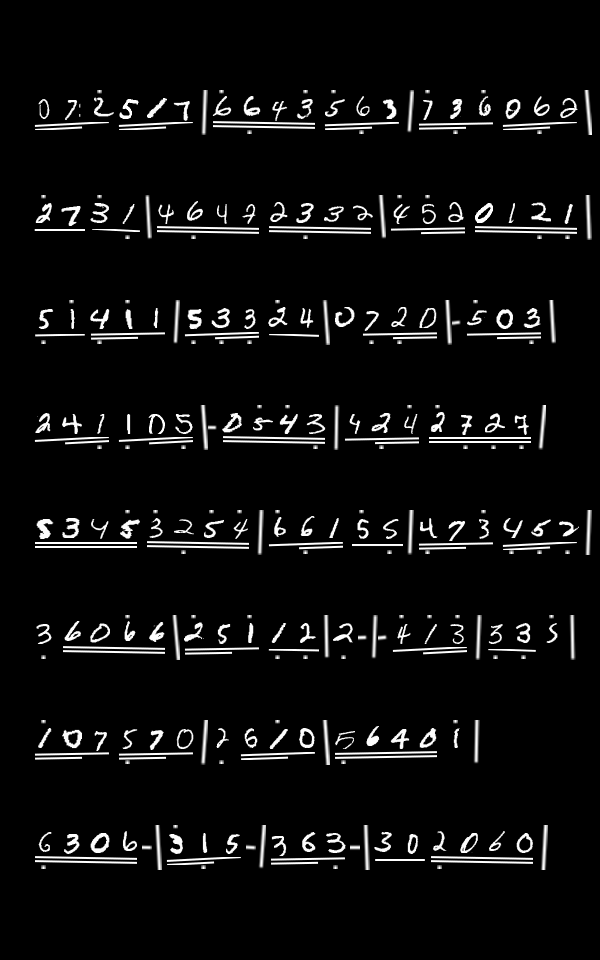 0 7 2 5 1 7 | 6 6 4 3 5 6 3 | 7 3 6 0 6 2 |
2 7 3 1 | 4 6 4 7 2 3 3 2 | 4 5 2 0 1 2 1 |
5 1 4 1 1 | 5 3 3 2 4 | 0 7 2 0 | - 5 0 3 |
2 4 1 1 0 5 | - 0 5 4 3 | 4 2 4 2 7 2 7 |
5 3 4 5 3 2 5 4 | 6 6 1 5 5 | 4 7 3 4 5 2 |
3 6 0 6 6 | 2 5 1 1 2 | 2 - | - 4 1 3 | 3 3 5 |
1 0 7 5 7 0 | 2 6 1 0 | 5 6 4 0 1 |
6 3 0 6 - | 3 1 5 - | 3 6 3 - | 3 0 2 0 6 0 |